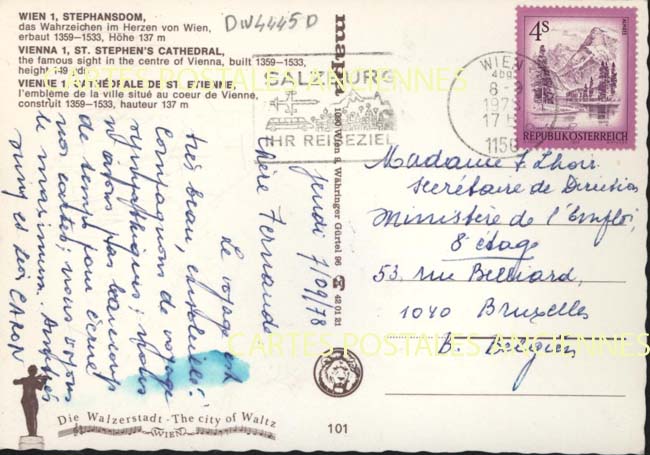 WIEN 1, STEPHANSDOM,
das Wahrzeichen im Herzen von Wien,
erbaut 1359–1533, Höhe 137 m
VIENNA 1, ST. STEPHEN'S CATHEDRAL,
the famous sight in the centre of Vienna, built 1359–1533,
height 449
VIENNE 1, CATHÉDRALE DE ST. ETIENNE,
l'emblème de la ville situé au coeur de Vienne,
construit 1359–1533, hauteur 137 m
DW4445D
CARTES POSTALES ANCIENNES
SALZBURG
IHR REISEZIEL
WIEN
8-9
1150
4S
REPUBLIK ÖSTERREICH
Wien 9, Währinger Gürtel 96 ☎ 42 01 21
Jeudi 7/09/78
Chère Fernande
Le voyage est
très beau, ensoleillé!
Compagnons de voyage
sympathiques; nous
n'avons pas beaucoup
de temps pour écrire
nos cartes; nous voyons
le maximum. Amitiés
CARON
Madame F.
Secrétaire de Direction
Ministère de l'Emploi,
8e étage
53, rue Belliard,
1040 Bruxelles
B. Belgien
CARTES POSTALES ANCIENNES
Die Walzerstadt · The city of Waltz
WIEN
101